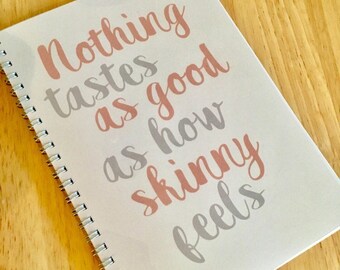 Nothing
tastes
as good
as how
skinny
feels